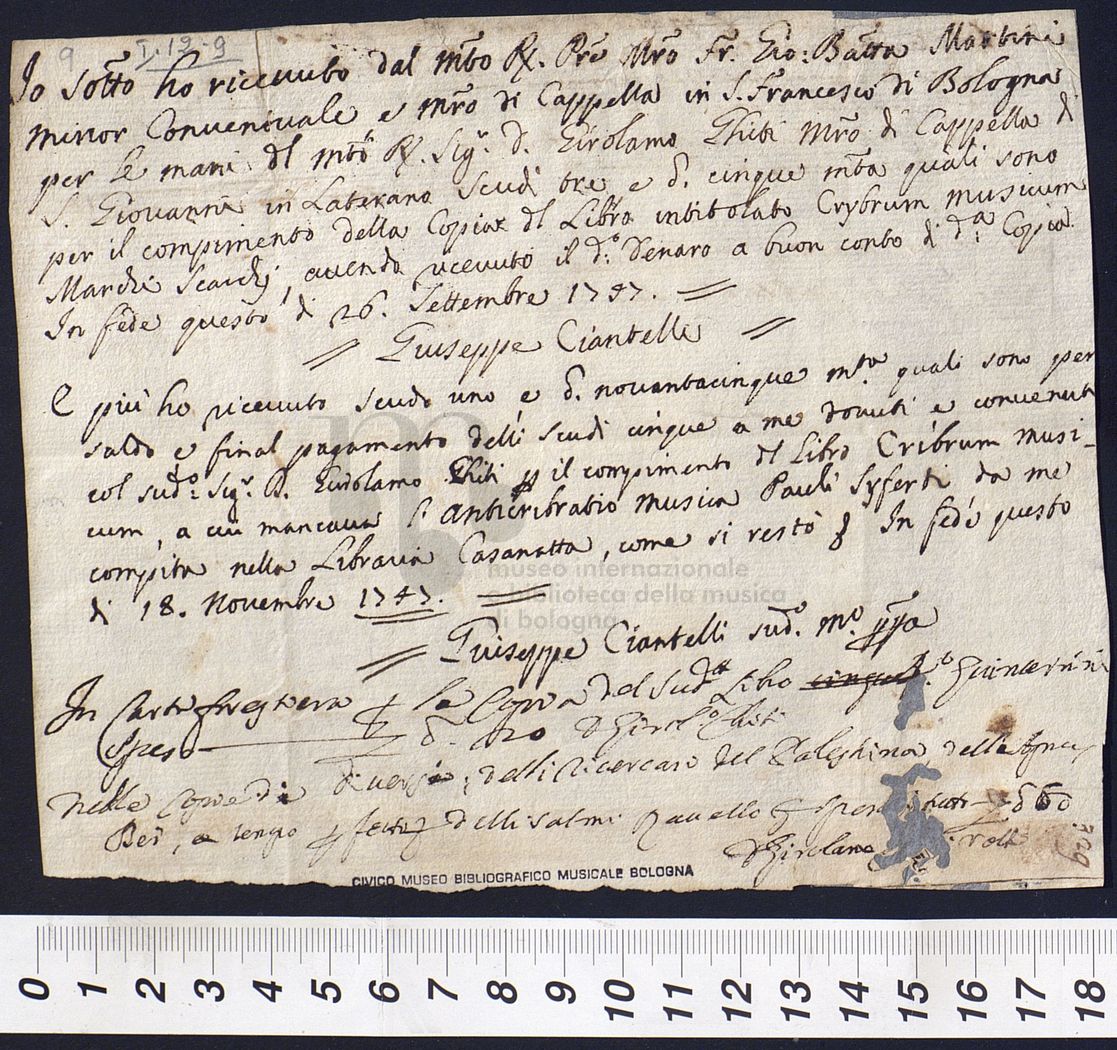 9 I.12.9
Io Sotto ho ricevuto dal Mto R. Pre Mro Fr. Gio: Batta Martini
minor Conventuale e Mro di Cappella in S. Francesco di Bologna
per le mani dl mto R. Sigr. D. Girolamo Chiti Mro di Cappella di
S. Giovanni in Laterano Scudi tre, e d. cinque mta quali sono
per il compimento della Copia dl Libro intitolato Crybrum musicum
Marchi Scacchi, avendo ricevuto il do: Denaro a buon conto di d.a Copia.
In fede questo di 26. Settembre 1747. =
= Giuseppe Ciantelli =
E più ho ricevuto scudo uno e d. novantacinque mta. quali sono per
saldo e final pagamento delli scudi cinque a me dovuti e convenuti
col sudo: Sigr. D. Girolamo Chiti p il compimento dl Libro Cribrum musi-
cum, a cui mancava l'anticribratio musica Pauli Syferti da me
compita nella Libraria Casanatta, come si restò In fede questo
di 18. Novembre 1747. =
= Giuseppe Ciantelli sudo. mo. ppa
In Carta p la Copia del Sud Libro
Spese d. D Girolo Chiti
nelle Copie di diversi, delli Ricercari del Palestrina, delle
delli salmi 60
D Girolamo
CIVICO MUSEO BIBLIOGRAFICO MUSICALE BOLOGNA
museo internazionale
e biblioteca della musica
di bologna
0 1 2 3 4 5 6 7 8 9 10 11 12 13 14 15 16 17 18